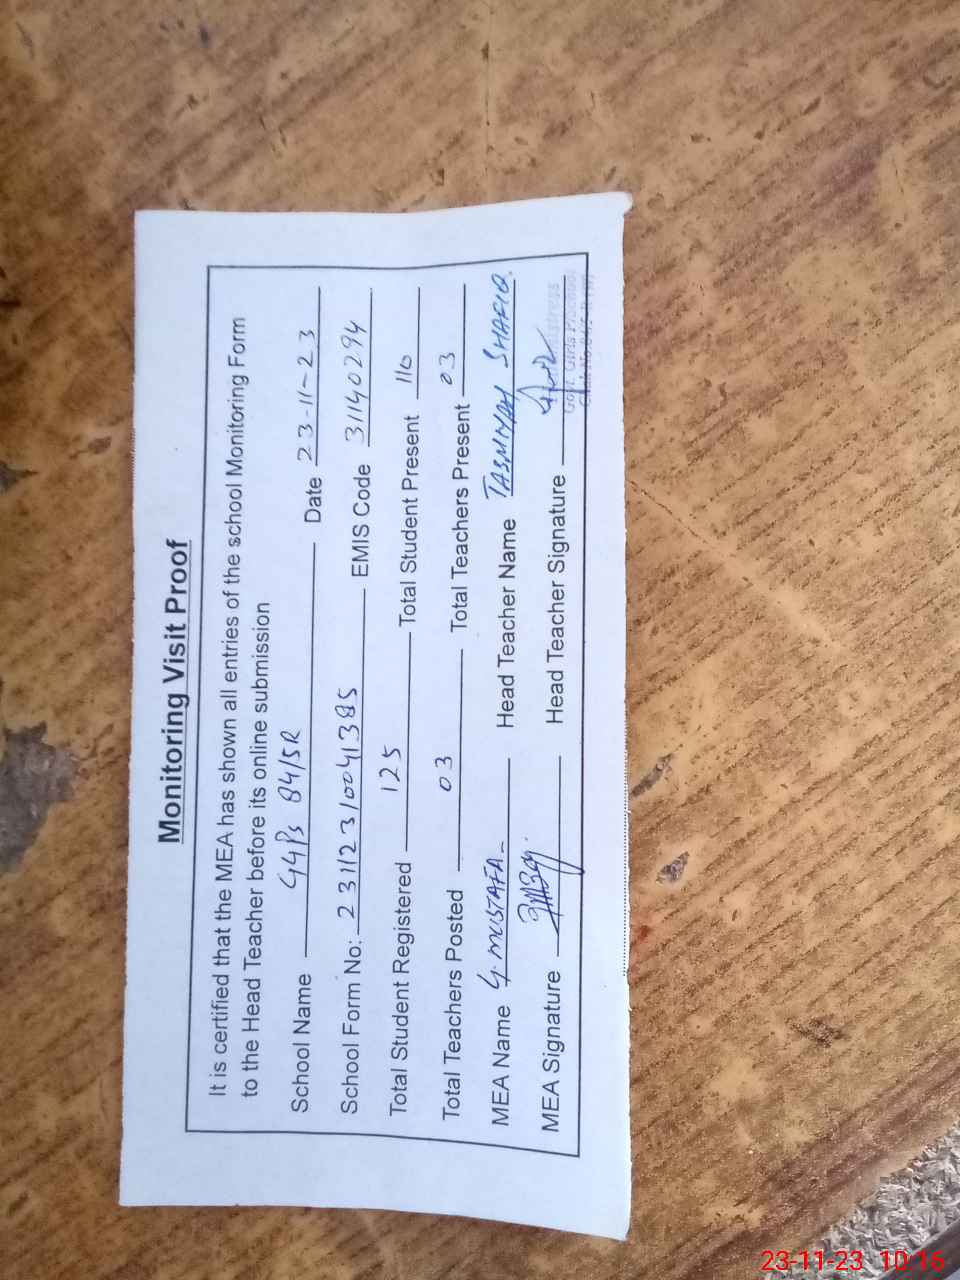 Monitoring Visit Proof
It is certified that the MEA has shown all entries of the school Monitoring Form
to the Head Teacher before its online submission
School Name GGPS 84/5R Date 23-11-23
School Form No: 23112310041385 EMIS Code 31140294
Total Student Registered 125 Total Student Present 110
Total Teachers Posted 03 Total Teachers Present 03
MEA Name G. MUSTAFA Head Teacher Name SHAFIQ
MEA Signature Head Teacher Signature
Govt. Girls
23-11-23 10:16